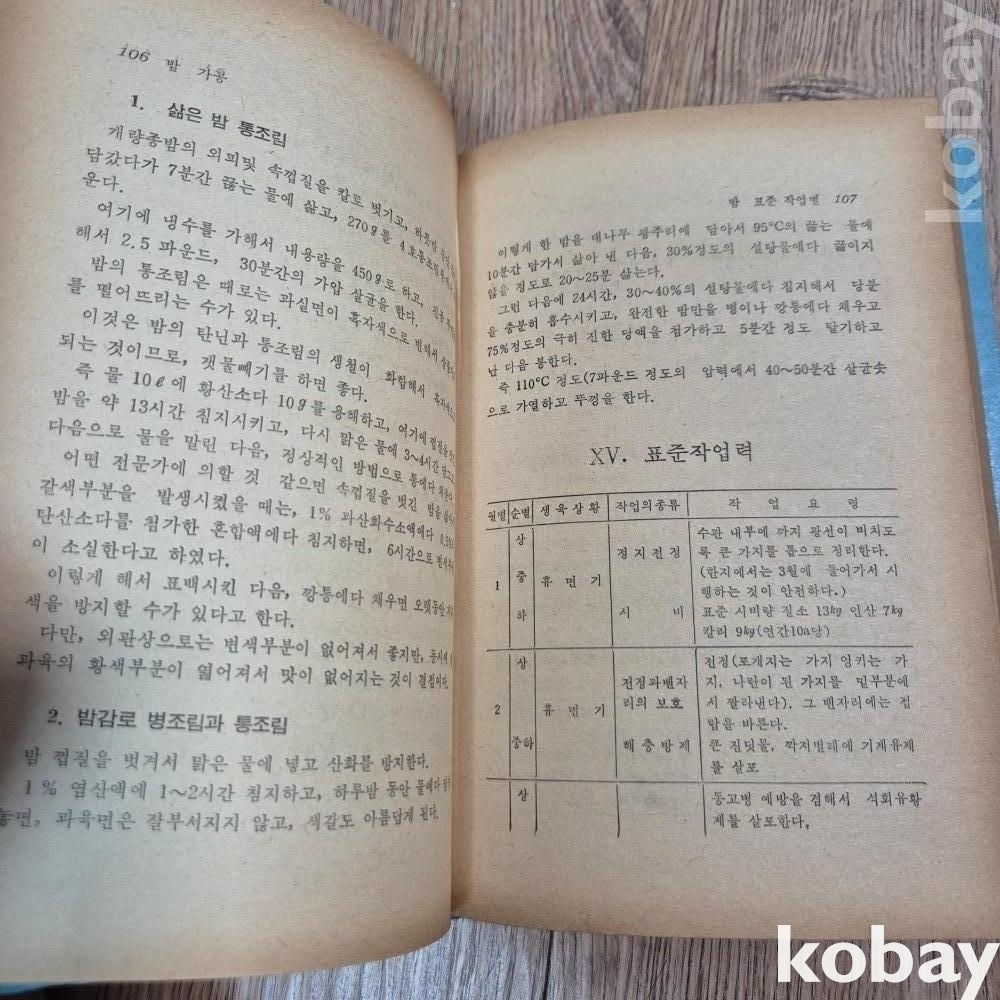 106 밤 가공
1. 삶은 밤 통조림
개량종밤의 외피및 속껍질을 칼로 벗기고, 하룻밤
담갔다가 7분간 끓는 물에 삶고, 270g를 4호통조림통에
운다.
여기에 냉수를 가해서 내용량을 450g로 하고,
해서 2.5 파운드, 30분간의 가압 살균을 한다.
밤의 통조림은 때로는 과실면이 흑자색으로 변해서
를 떨어뜨리는 수가 있다.
이것은 밤의 탄닌과 통조림의 생철이 화합해서
되는 것이므로, 갯물빼기를 하면 좋다.
즉 물 10ℓ에 황산소다 10g를 용해하고, 여기에 껍질을
밤을 약 13시간 침지시키고, 다시 맑은 물에 3~4시간 담그고
다음으로 물을 말린 다음, 정상적인 방법으로 통에다
어떤 전문가에 의할 것 같으면 속껍질을 벗긴 밤을
갈색부분을 발생시켰을 때는, 1% 과산화수소액에다
탄산소다를 첨가한 혼합액에다 침지하면, 6시간으로
이 소실한다고 하였다.
이렇게 해서 표백시킨 다음, 깡통에다 채우면 오랫동안
색을 방지할 수가 있다고 한다.
다만, 외관상으로는 변색부분이 없어져서 좋지만, 동시에
과육의 황색부분이 엷어져서 맛이 없어지는 것이 결점이다.
2. 밤감로 병조림과 통조림
밤 껍질을 벗겨서 맑은 물에 넣고 산화를 방지한다.
1% 염산액에 1~2시간 침지하고, 하루밤 동안 물에다
놓면, 과육면은 잘부서지지 않고, 색갈도 아름답게 된다.
밤 표준 작업별 107
이렇게 한 밤을 대나무 광주리에 담아서 95°C의 끓는 물에
10분간 담가서 삶아 낸 다음, 30%정도의 설탕물에다 끓이지
않을 정도로 20~25분 삶는다.
그런 다음에 24시간, 30~40%의 설탕물에다 침지해서 당분
을 충분히 흡수시키고, 완전한 밤만을 병이나 깡통에다 채우고
75%정도의 극히 진한 당액을 첨가하고 5분간 정도 탈기하고
난 다음 봉한다.
즉 110°C 정도(7파운드 정도의 압력에서 40~50분간 살균솟
으로 가열하고 뚜껑을 한다.
XV. 표준작업력
월별 순별 생육상황 작업의종류 작업요령
1 상 중 하 휴면기 정지전정 수관 내부에 까지 광선이 비치도
록 큰 가지를 톱으로 정리한다.
(한지에서는 3월에 들어가서 시
행하는 것이 안전하다.)
시비 표준 시비량 질소 13kg 인산 7kg
칼리 9kg(연간10a당)
2 상 중하 휴면기 전정과벤자리의 보호 전정(포개지는 가지 엉키는 가
지, 나란이 된 가지를 밑부분에
서 짤라낸다). 그 벤자리에는 접
랍을 바른다.
해충방제 큰 진딧물, 깍지벌레에 기계유제
를 살포
상 동고병 예방을 겸해서 석회유황
제를 살포한다.
kobay
kobay